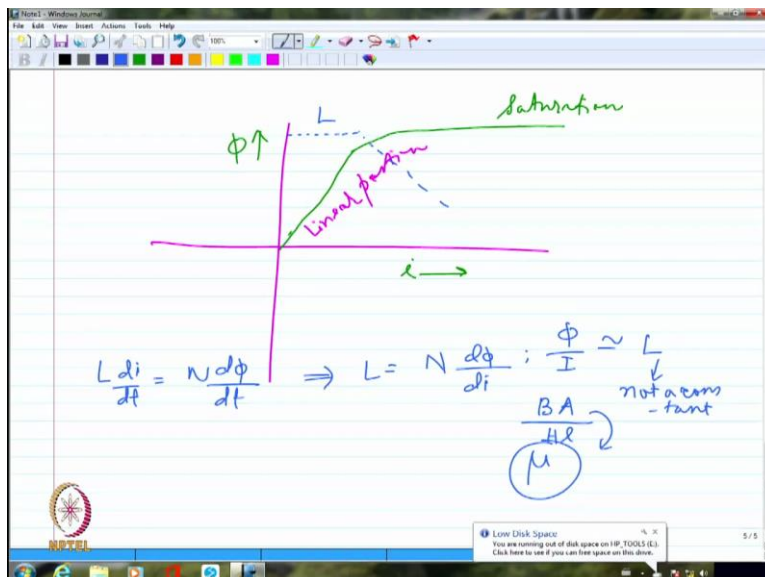 Note1 - Windows Journal
File Edit View Insert Actions Tools Help
100%
B I
L
Saturation
Φ↑
Linear portion
i →
L di/dt = N dφ/dt ⇒ L = N dφ/di ; Φ/I ≃ L
↓
not a con
-stant
BA/Hl
μ
NPTEL
Low Disk Space
You are running out of disk space on HP_TOOLS (E:).
Click here to see if you can free space on this drive.
5/5